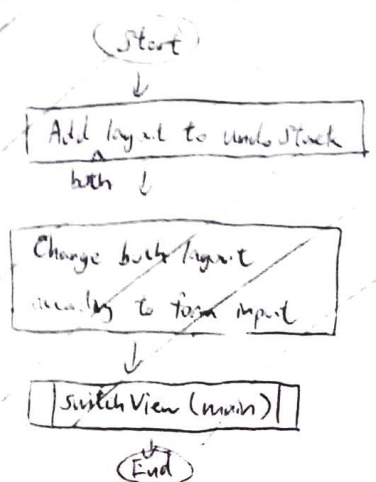 Start
Add layout to undo stack
both
Change both layout
to form input
switchView (main)
End